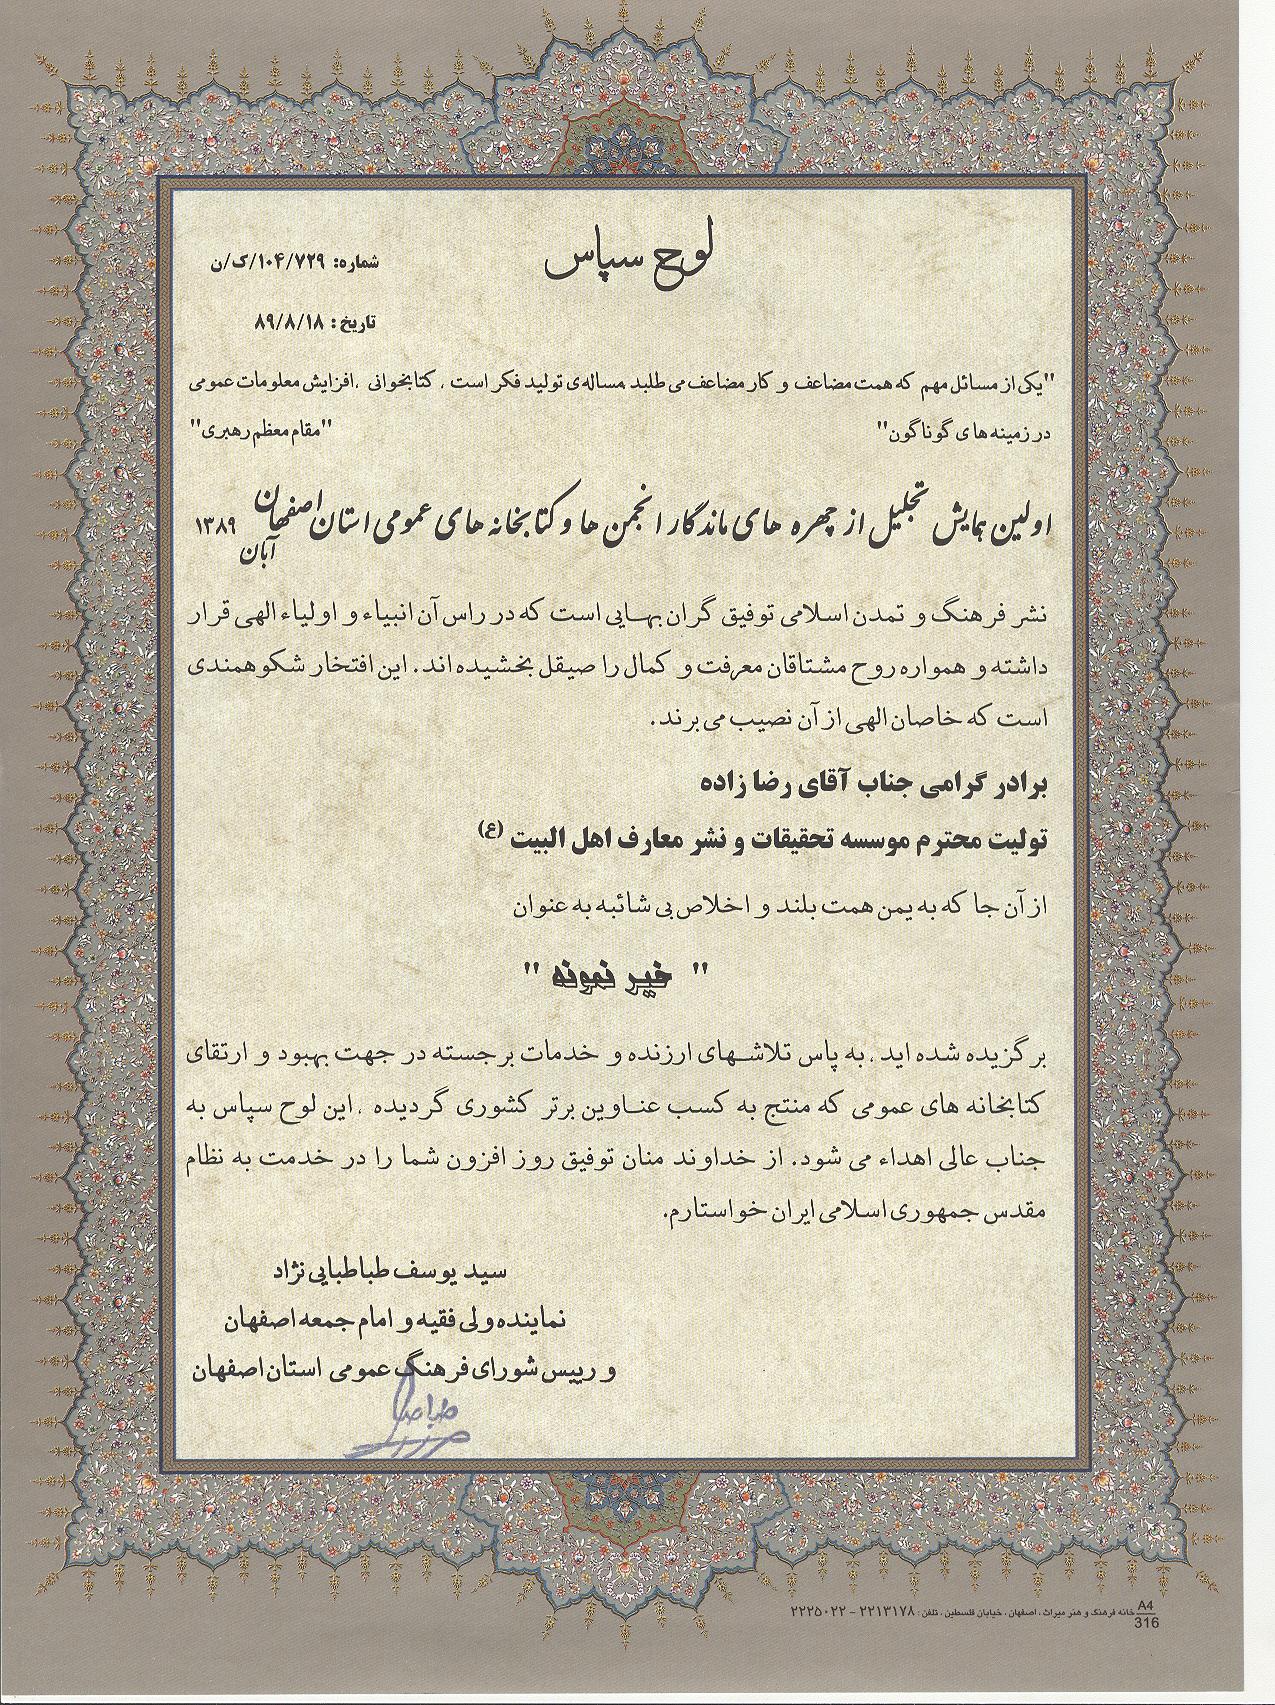 لوح سپاس
شماره: ۱۰۴/۷۲۹/ک/ن
تاریخ: ۸۹/۸/۱۸
"یکی از مسائل مهم که همت مضاعف و کار مضاعف می طلبد مساله ی تولید فکر است ، کتابخوانی ،افزایش معلومات عمومی
در زمینه های گوناگون" "مقام معظم رهبری"
اولین همایش تجلیل از چهره های ماندگار انجمن ها و کتابخانه های عمومی استان اصفهان
آبان ۱۳۸۹
نشر فرهنگ و تمدن اسلامی توفیق گران بهایی است که در راس آن انبیاء و اولیاء الهی قرار
داشته و همواره روح مشتاقان معرفت و کمال را صیقل بخشیده اند. این افتخار شکوهمندی
است که خاصان الهی از آن نصیب می برند.
برادر گرامی جناب آقای رضا زاده
تولیت محترم موسسه تحقیقات و نشر معارف اهل البیت (ع)
از آن جا که به یمن همت بلند و اخلاص بی شائبه به عنوان
" خیر نمونه "
برگزیده شده اید ، به پاس تلاشهای ارزنده و خدمات برجسته در جهت بهبود و ارتقای
کتابخانه های عمومی که منتج به کسب عناوین برتر کشوری گردیده ، این لوح سپاس به
جناب عالی اهداء می شود. از خداوند منان توفیق روز افزون شما را در خدمت به نظام
مقدس جمهوری اسلامی ایران خواستارم.
سید یوسف طباطبایی نژاد
نماینده ولی فقیه و امام جمعه اصفهان
و رییس شورای فرهنگ عمومی استان اصفهان
A4
316
خانه فرهنگ و هنر میراث ، اصفهان ، خیابان فلسطین ، تلفن : ۲۲۱۳۱۷۸ - ۲۲۲۵۰۲۲